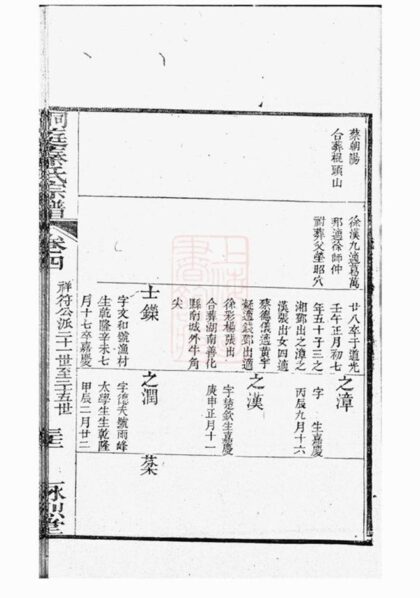 蔡朝陽
合葬棍頭山
徐漢九適葛萬
邢適徐師仲
祔葬父塋昭穴
廿八卒于道光
壬午正月初七
年五十子三之
湘鄧出之漳之
漢張出女四適
蔡德儀適黃宇
凝適錢鄧出適
徐彩楊張出
合葬湖南善化
縣南城外牛角
尖
之漳
字 生嘉慶
丙辰九月十六
之漢
字楚欽生嘉慶
庚申正月十一
士鑅
字文和號漁村
生乾隆辛未七
月十七卒嘉慶
之潤
字德夫號雨峰
太學生生乾隆
甲辰二月廿二
棻
洞庭秦氏宗譜
卷四
祥符公派二十一世至二十五世